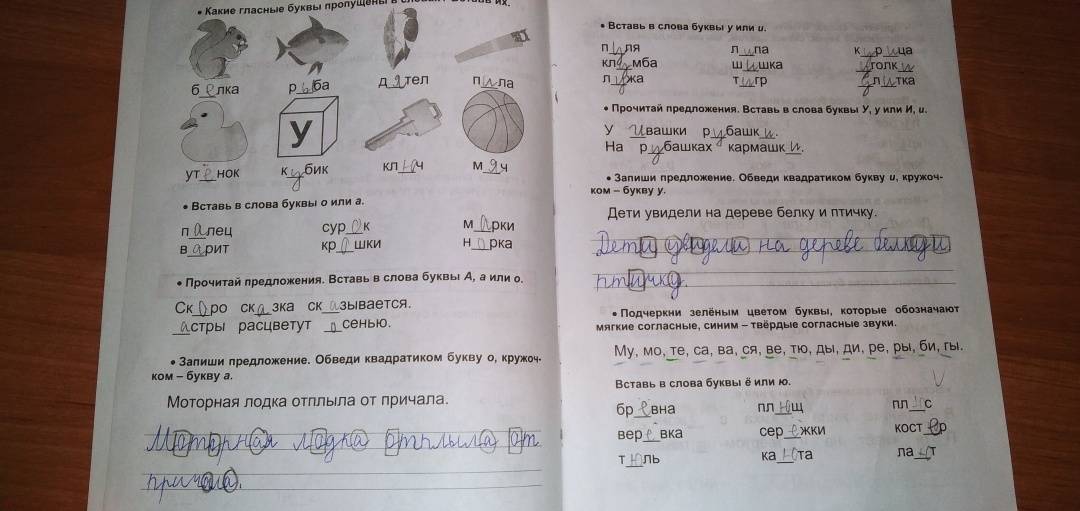 • Какие гласные буквы пропущены в словах? Вставь их.
белка рыба дятел пила
У
утёнок кубик ключ мяч
• Вставь в слова буквы о или а.
палец сурок марки
варит крошки норка
• Прочитай предложения. Вставь в слова буквы А, а или о.
Скоро сказка сказывается.
астры расцветут осенью.
• Запиши предложение. Обведи квадратиком букву о, кружоч-
ком – букву а.
Моторная лодка отплыла от причала.
Моторная лодка отплыла от
причала.
• Вставь в слова буквы у или и.
пуля липа курица
клумба шишка уголки
лужа тигр улитка
• Прочитай предложения. Вставь в слова буквы У, у или И, и.
У Ивашки рубашки.
На рубашках кармашки.
• Запиши предложение. Обведи квадратиком букву и, кружоч-
ком – букву у.
Дети увидели на дереве белку и птичку.
Дети увидели на дереве белку и
птичку.
• Подчеркни зелёным цветом буквы, которые обозначают
мягкие согласные, синим – твёрдые согласные звуки.
Му, мо, те, са, ва, ся, ве, тю, ды, ди, ре, ры, би, гы.
Вставь в слова буквы ё или ю.
бревна плющ плюс
веревка сережки костер
тюль каюта лают